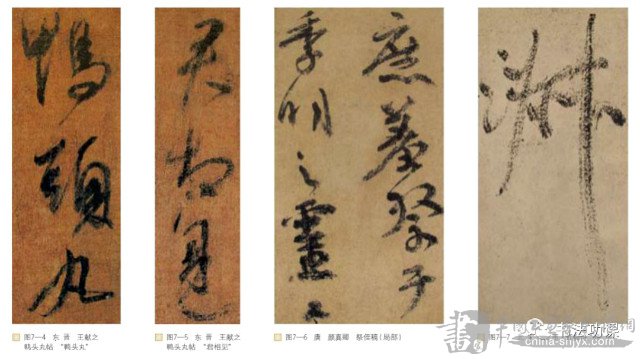 鴨頭丸
君相見
庶羞祭于
季明之靈
淋
图7—4 东 晋 王献之
鸭头丸帖 “鸭头丸”
图7—5 东 晋 王献之
鸭头丸帖 “君相见”
图7—6 唐 颜真卿 祭侄稿(局部)
图7—7
china-shjyx.com